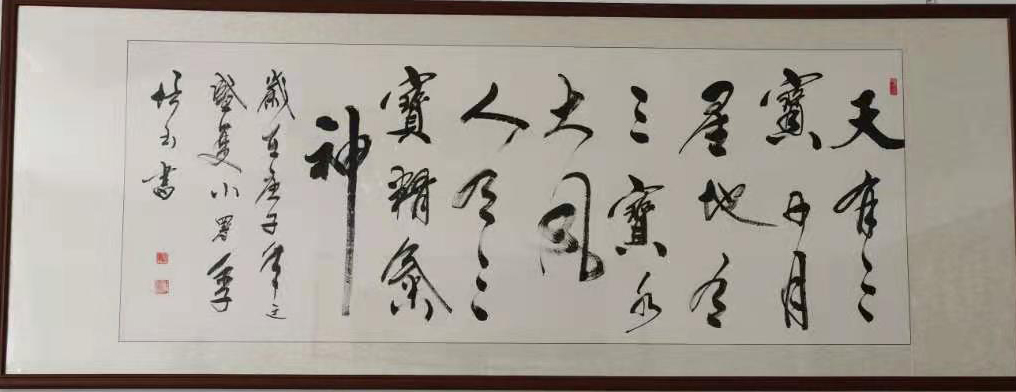 天有三
寶日月
星地有
三寶水
火風
人有三
寶精氣
神
歲在庚子年之
盛夏小暑季
書